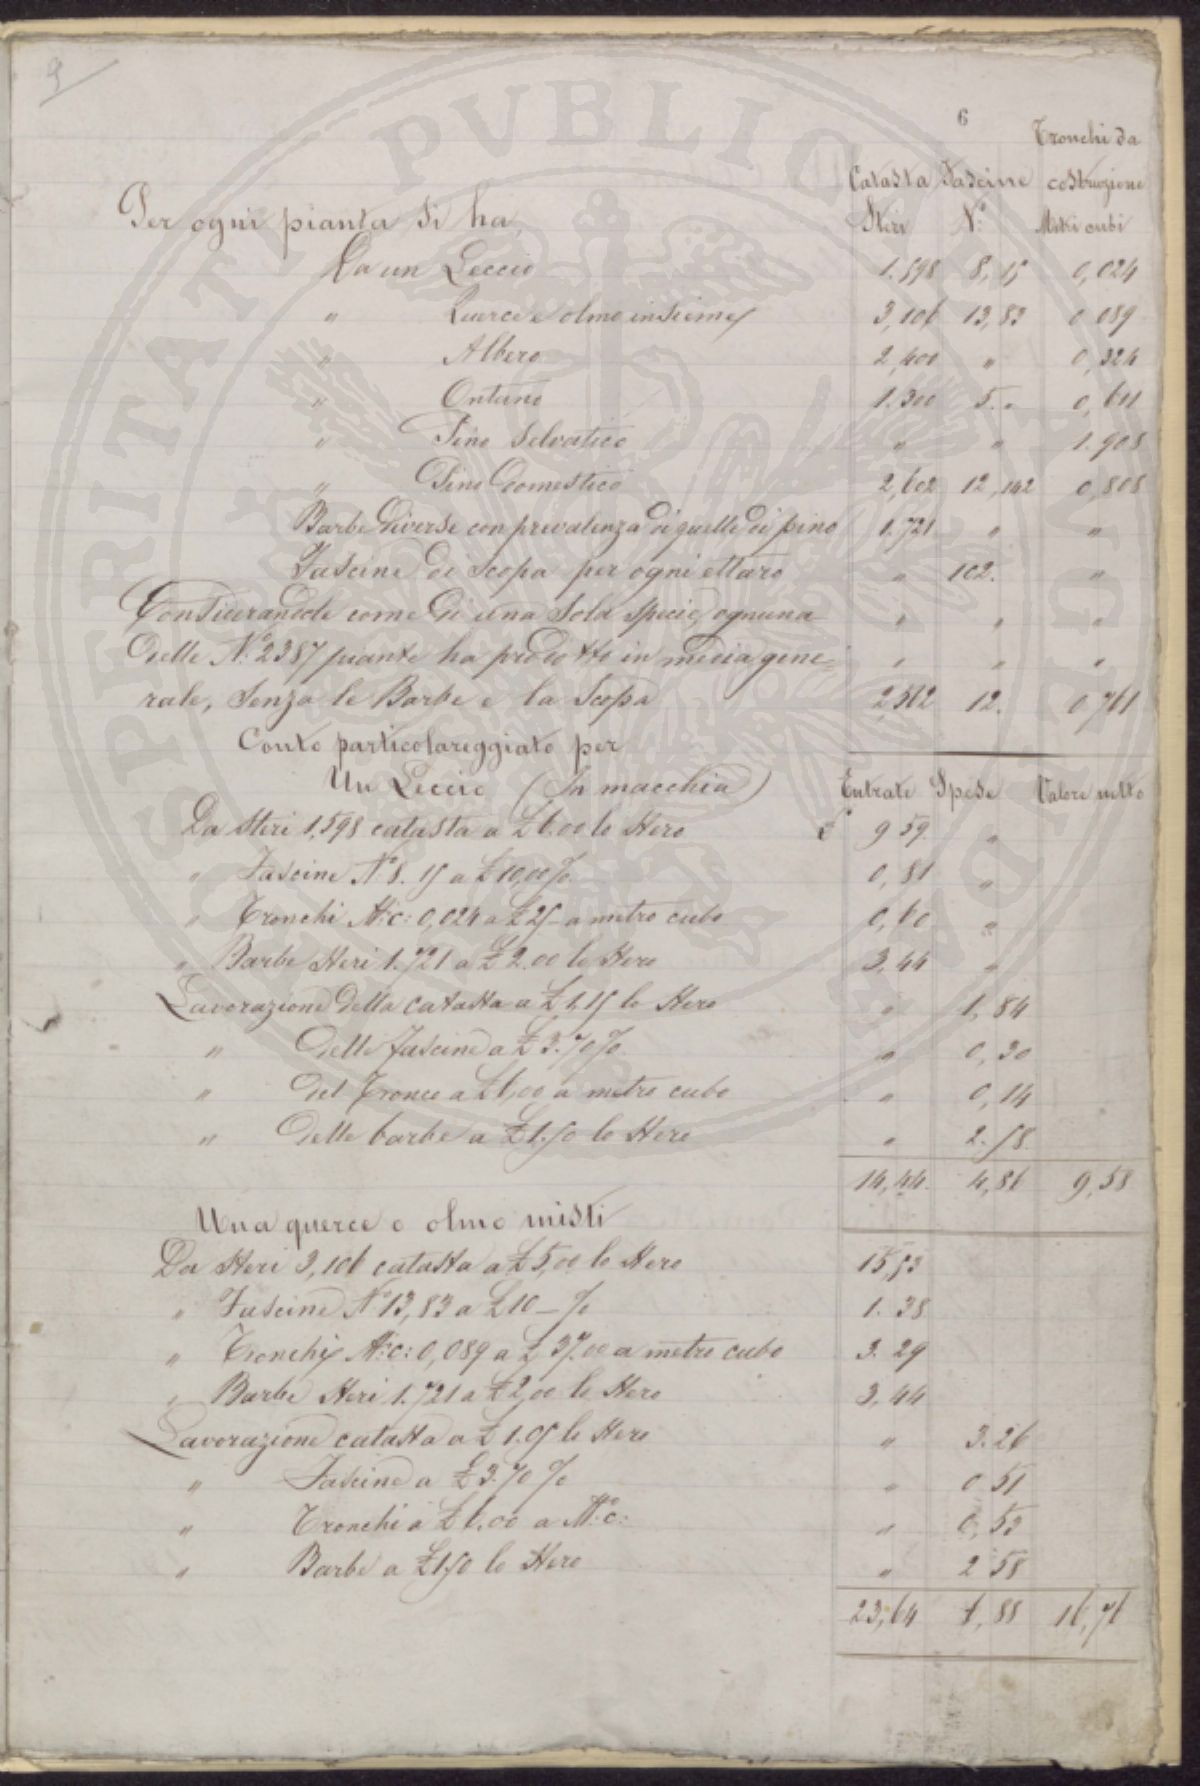 9
6
Tronchi da
Catasta Fascine costruzione
Per ogni pianta si ha, Steri N.° Metri cubi
Da un Leccio 1.598 8,15 0,024
" Querce e olmo insieme 3,106 13,83 0 089
" Albero 2,400 " 0,324
" Ontano 1.300 5. " 0,611
" Pino Selvatico " " 1.908
" Pino Domestico 2,602 12,142 0,808
Barbe Diverse con prevalenza di quelle di pino 1.721 " "
Fascine di Scopa per ogni ettaro " 102. "
Considerandole come di una Sola Specie, ognuna " " "
delle N.° 2387 piante ha prodotto in media gene= " " "
rale, Senza le Barbe e la Scopa 2,512 12. 0,761
Conto particolareggiato per
Un Leccio (In macchia) Entrate Spese Valore netto
Da Steri 1,598 catasta a £ 6.00 lo Stero £ 9 59. "
" Fascine N.° 8.15 a £ 10,00 % 0,81 "
" Tronchi M: c: 0,024 a £ 25 - a metro cubo 0,60 "
" Barbe Steri 1.721 a £ 2.00 lo Stero 3,44 "
Lavorazione della catasta a £ 1,15 lo Stero " 1,84
" delle fascine a £ 3.70 % " 0,30
" del Tronco a £ 6,00 a metro cubo " 0,14
" delle barbe a £ 1.50 lo Stero " 2.58
14,44. 4,86 9,58
Una querce o olmo misti
Da Steri 3,106 catasta a £ 5,00 lo Stero 15,53
" Fascine N.° 13,83 a £ 10 - % 1.38
" Tronchi M: c: 0,089 a £ 37.00 a metro cubo 3.29
" Barbe Steri 1.721 a £ 2,00 lo Stero 3,44
Lavorazione catasta a £ 1.05 lo Stero " 3.26
" Fascine a £ 3.70 % " 0 51
" Tronchi a £ 6.00 a M: c: " 0,53
" Barbe a £ 1,50 lo Stero " 2 58
23,64 6,88 16,76
PROSPERITATI PUBLICAE